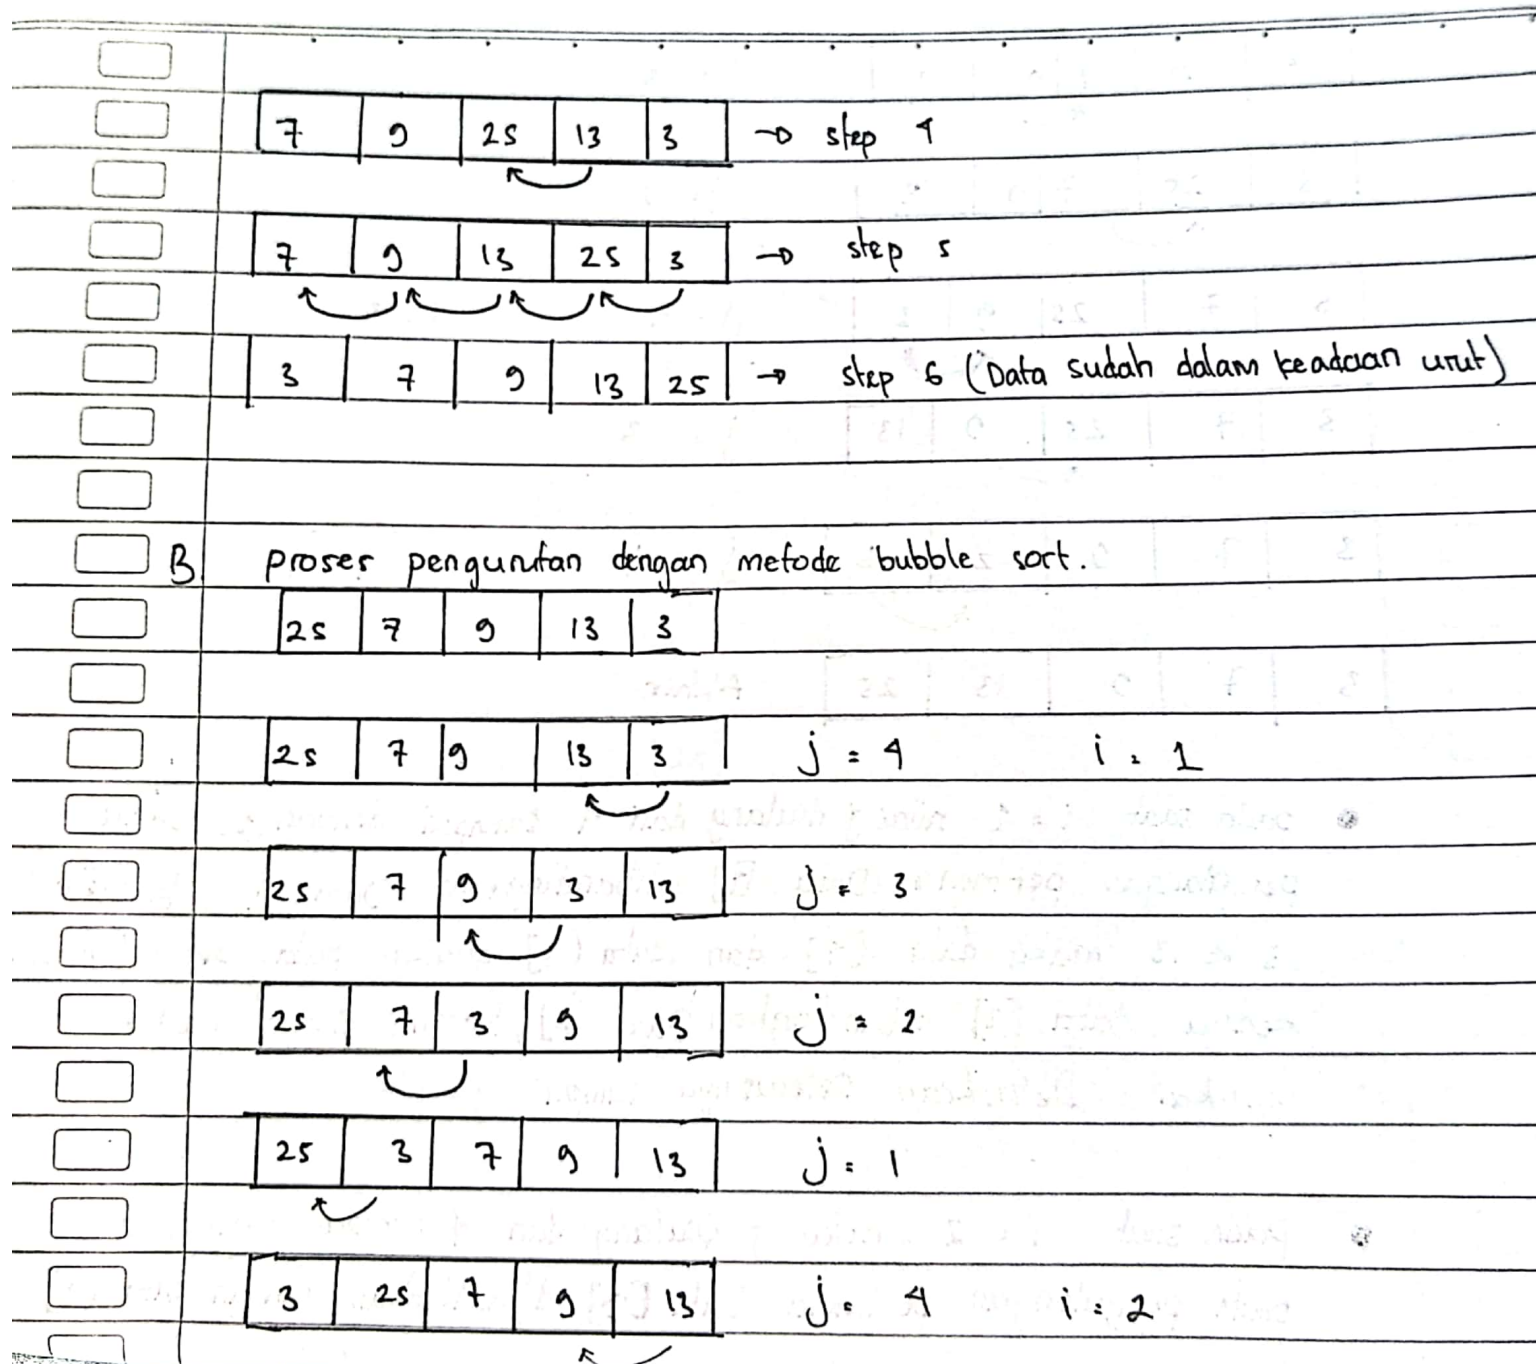 7 9 25 13 3 → step 4
7 9 13 25 3 → step 5
3 7 9 13 25 → step 6 (Data sudah dalam keadaan urut)
B. proses pengurutan dengan metode bubble sort.
25 7 9 13 3
25 7 9 13 3 j = 4 i = 1
25 7 9 3 13 j = 3
25 7 3 9 13 j = 2
25 3 7 9 13 j = 1
3 25 7 9 13 j = 4 i = 2